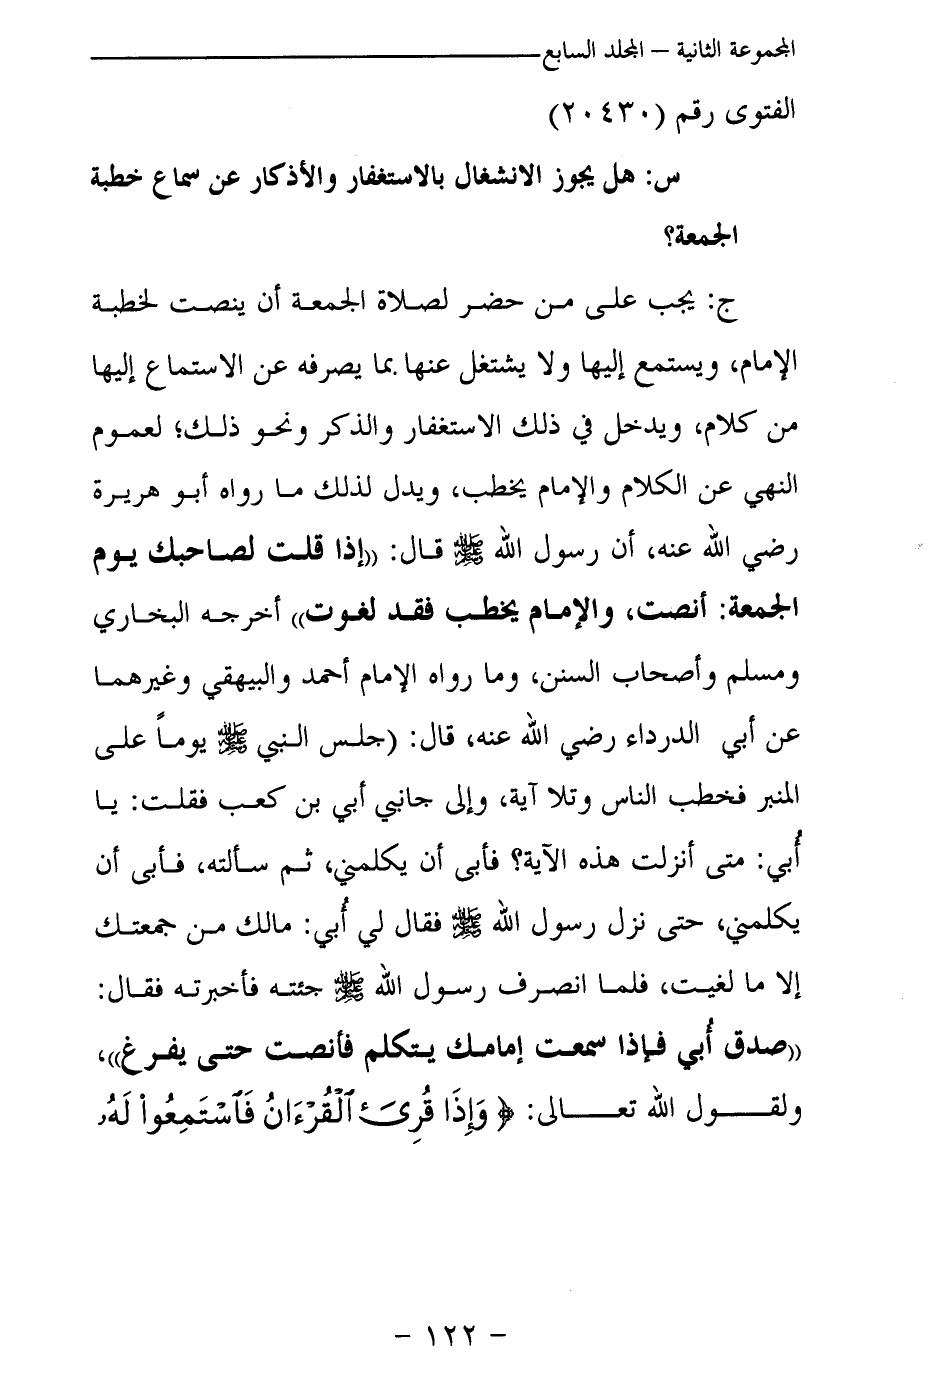 المجموعة الثانية – المجلد السابع
الفتوى رقم (٢٠٤٣٠)
س: هل يجوز الانشغال بالاستغفار والأذكار عن سماع خطبة
الجمعة؟
ج: يجب على من حضر لصلاة الجمعة أن ينصت لخطبة
الإمام، ويستمع إليها ولا يشتغل عنها بما يصرفه عن الاستماع إليها
من كلام، ويدخل في ذلك الاستغفار والذكر ونحو ذلك؛ لعموم
النهي عن الكلام والإمام يخطب، ويدل لذلك ما رواه أبو هريرة
رضي الله عنه، أن رسول الله ﷺ قال: ((إذا قلت لصاحبك يوم
الجمعة: أنصت، والإمام يخطب فقد لغوت)) أخرجه البخاري
ومسلم وأصحاب السنن، وما رواه الإمام أحمد والبيهقي وغيرهما
عن أبي الدرداء رضي الله عنه، قال: (جلس النبي ﷺ يوماً على
المنبر فخطب الناس وتلا آية، وإلى جانبي أبي بن كعب فقلت: يا
أُبي: متى أنزلت هذه الآية؟ فأبى أن يكلمني، ثم سألته، فأبى أن
يكلمني، حتى نزل رسول الله ﷺ فقال لي أُبي: مالك من جمعتك
إلا ما لغيت، فلما انصرف رسول الله ﷺ جئته فأخبرته فقال:
((صدق أُبي فإذا سمعت إمامك يتكلم فأنصت حتى يفرغ))،
ولقول الله تعالى: ﴿ وَإِذَا قُرِئَ ٱلْقُرْءَانُ فَٱسْتَمِعُوا۟ لَهُۥ
- ١٢٢ -